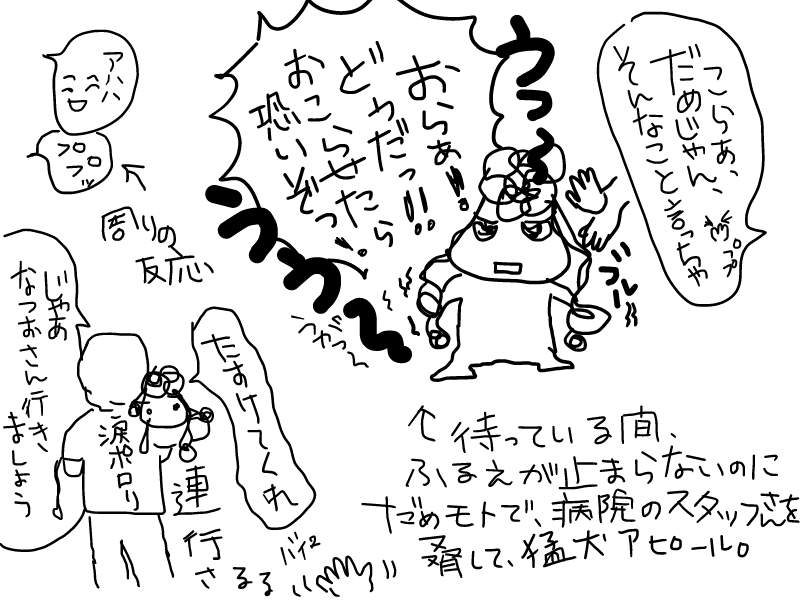 こらぁ、
だめじゃん、
そんなこと言っちゃ
ププ
うっ〜
おらぁ!!
どうだっ!!
おこらせたら
恐いぞっ!!
う、わん〜
つやっ〜
ブルー
アハハ
プロロ
プッ
↖
周りの
反応
じゃあ
なつおさん行き
ましょう
涙ポロリ
たすけてくれ
連行
される
バイ2
↑待っている間、
ふるえが止まらないのに
だめモトで、病院のスタッフさんを
脅して、猛犬アピール。